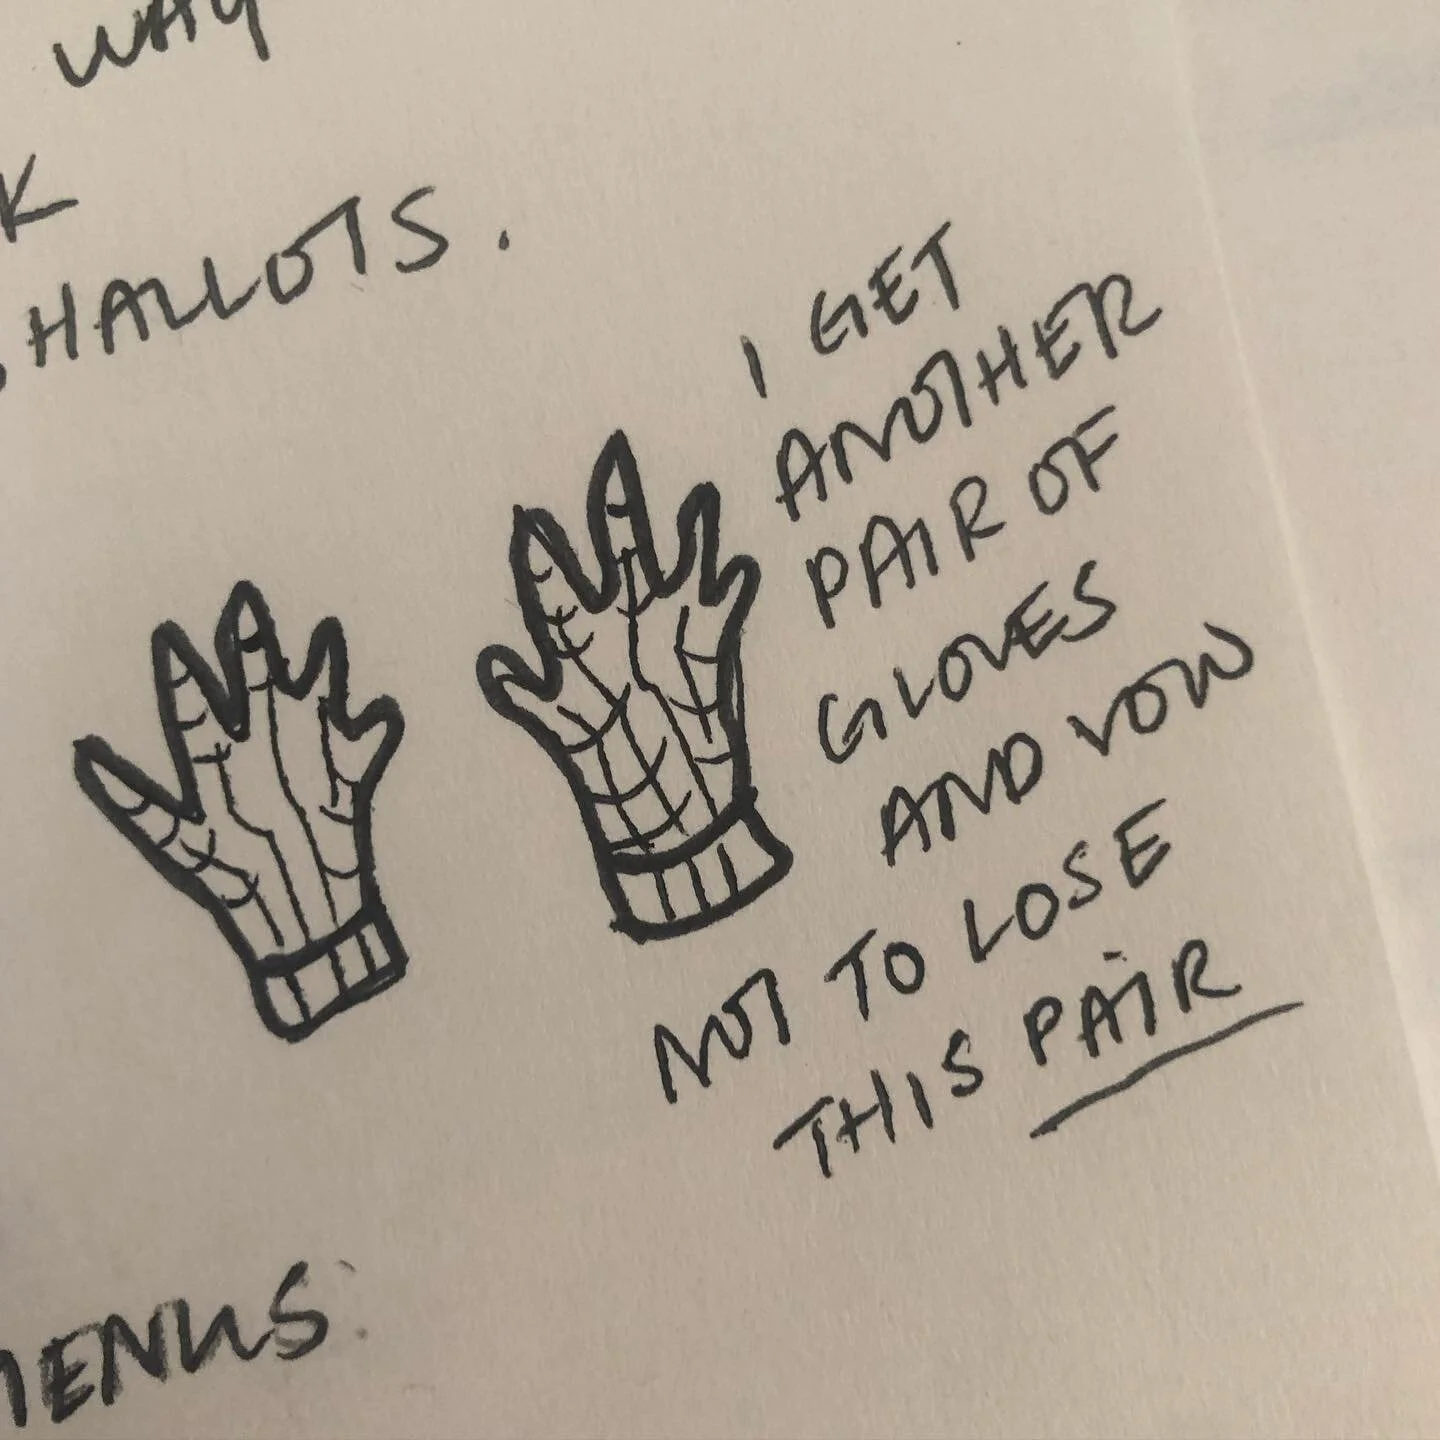 WAY
K
SHALLOTS.
I GET
ANOTHER
PAIR OF
GLOVES
AND VOW
NOT TO LOSE
THIS PAIR
MENUS